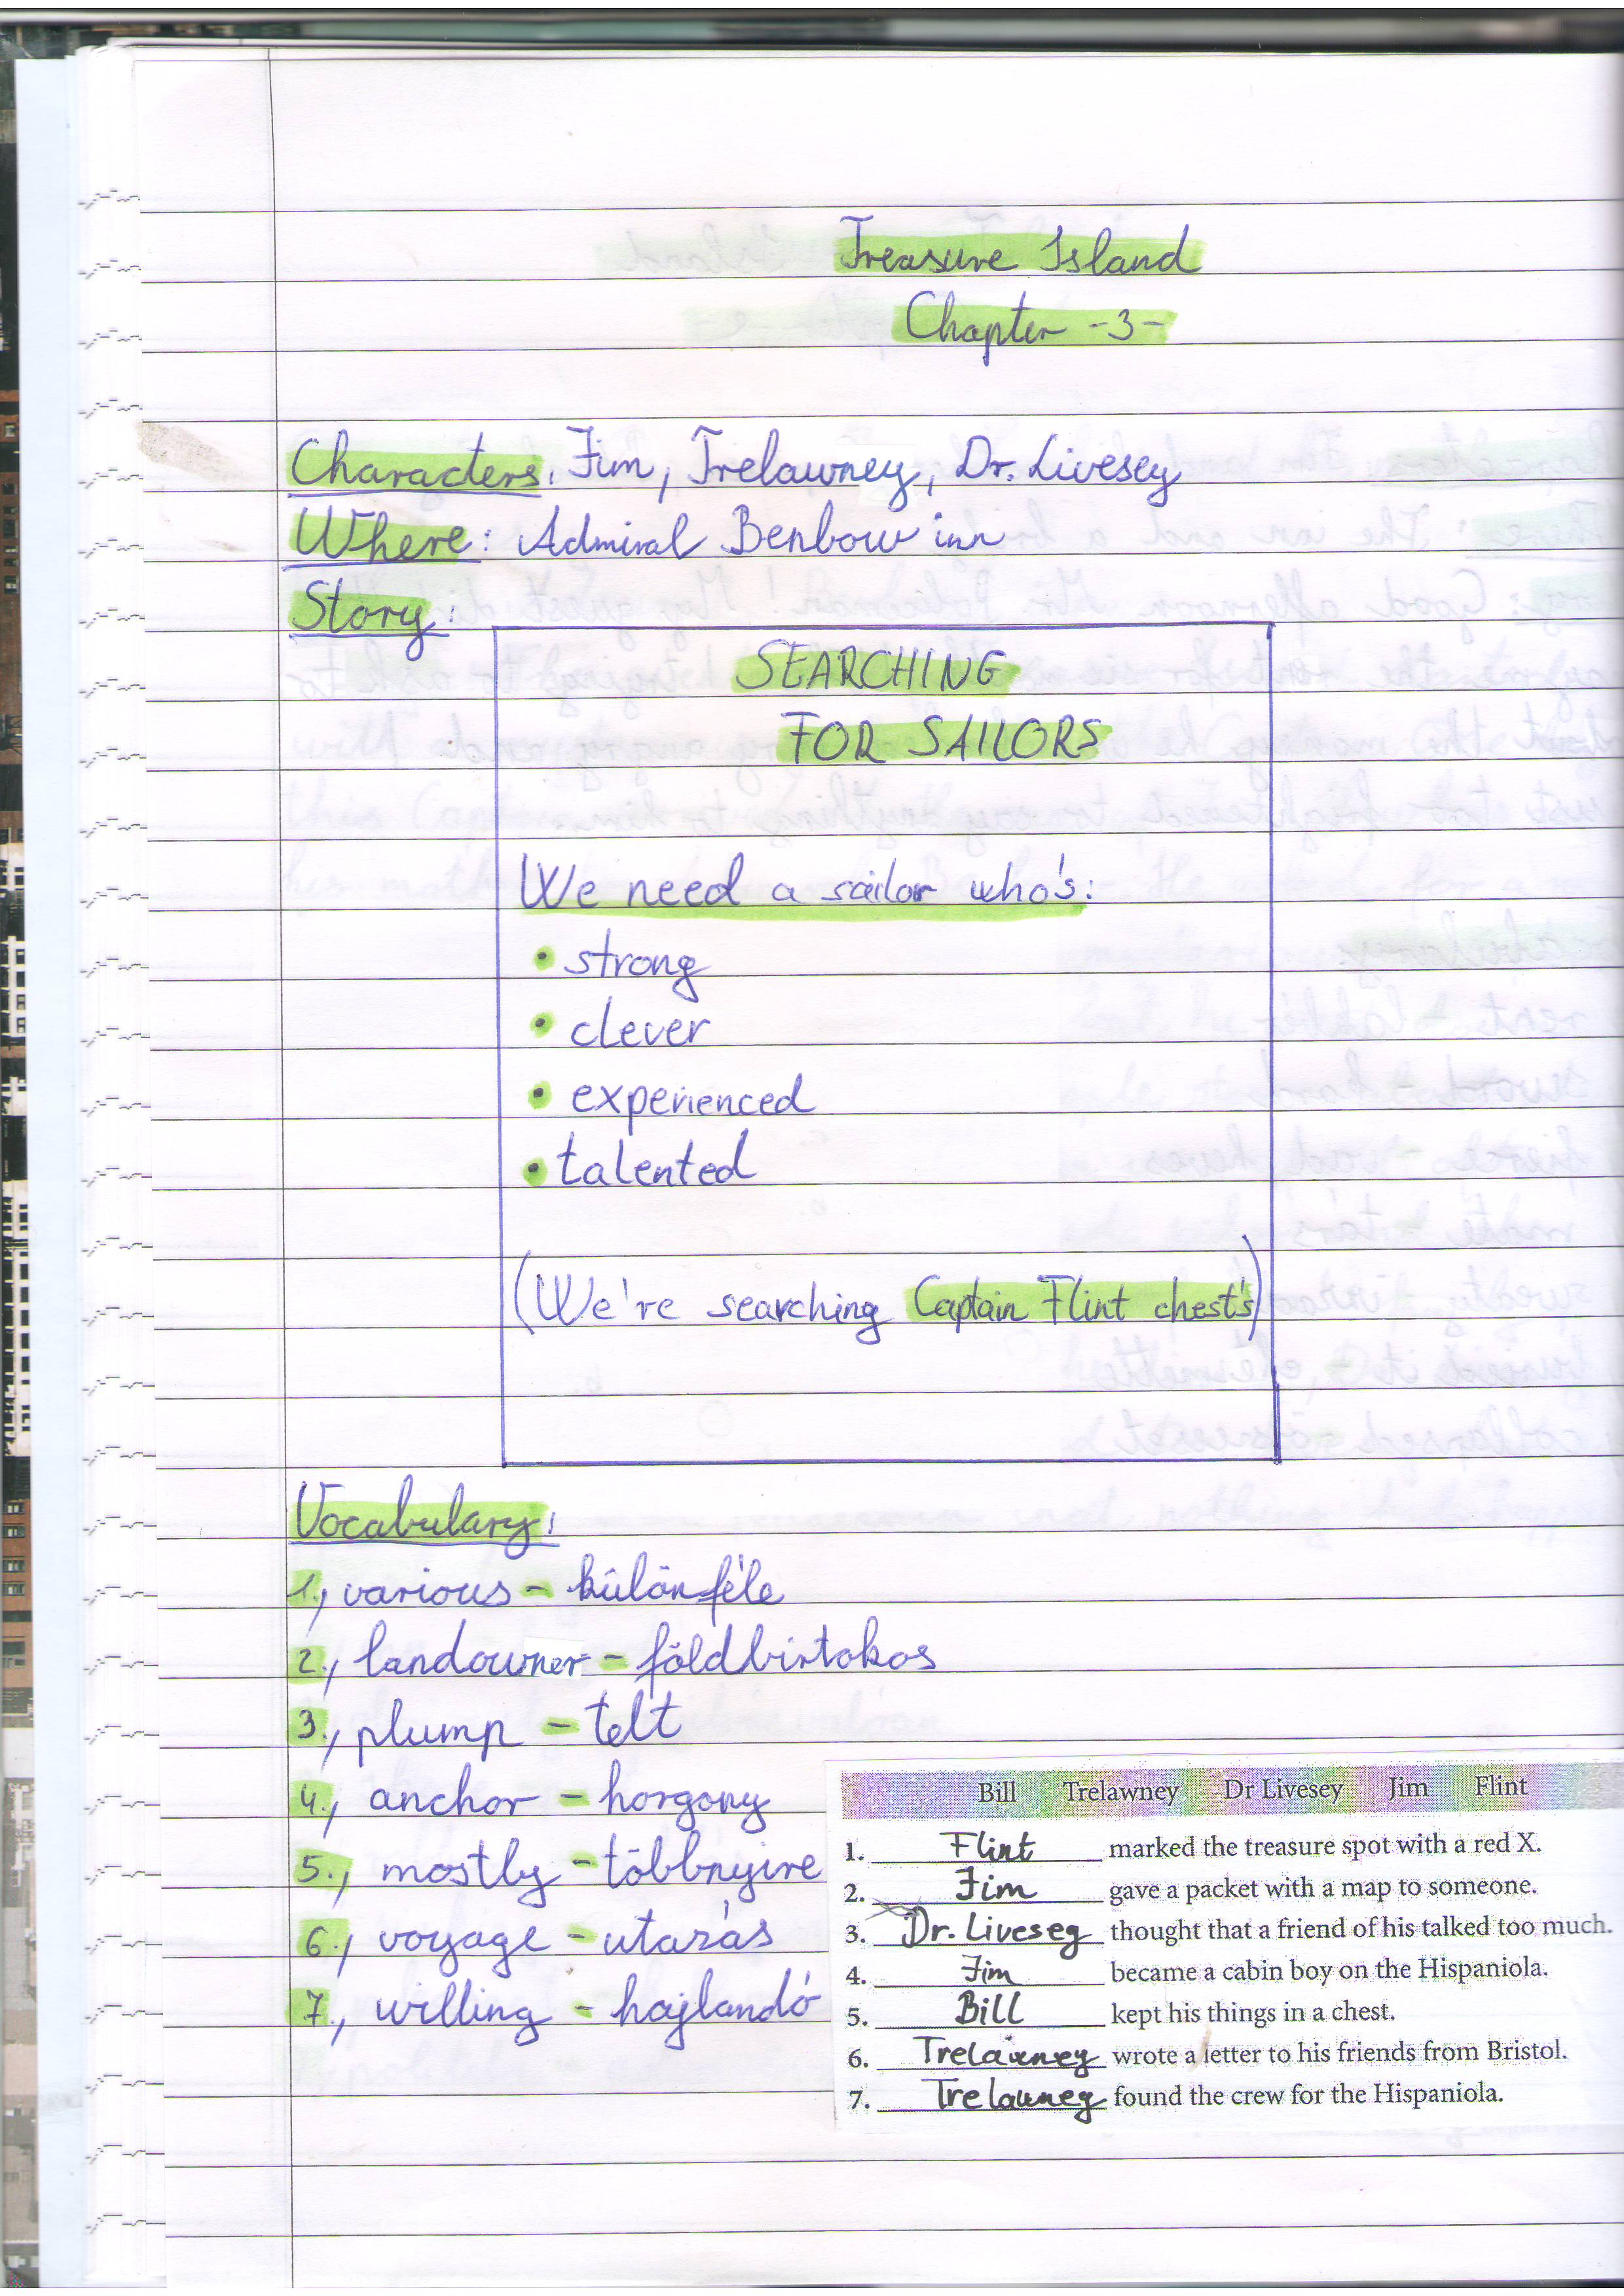 Treasure Island
Chapter -3-
Characters: Jim, Trelawney, Dr. Livesey
Where: Admiral Benbow inn
Story:
SEARCHING
FOR SAILORS
We need a sailor who's:
• strong
• clever
• experienced
• talented
(We're searching Captain Flint chest's)
Vocabulary:
1., various - különféle
2., landowner - földbirtokos
3., plump - telt
4., anchor - horgony
5., mostly - többnyire
6., voyage - utazás
7., willing - hajlandó
Bill Trelawney Dr Livesey Jim Flint
1. Flint marked the treasure spot with a red X.
2. Jim gave a packet with a map to someone.
3. Dr. Livesey thought that a friend of his talked too much.
4. Jim became a cabin boy on the Hispaniola.
5. Bill kept his things in a chest.
6. Trelawney wrote a letter to his friends from Bristol.
7. Trelawney found the crew for the Hispaniola.